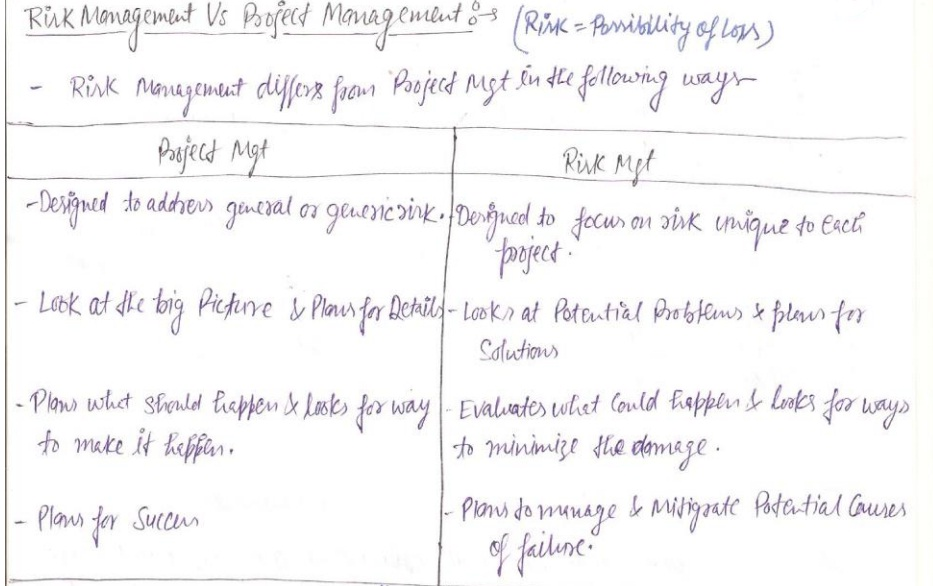 Risk Management Vs Project Management :→ (Risk = Possibility of loss)
- Risk Management differs from Project Mgt in the following ways
Project Mgt
Risk Mgt
- Designed to address general or generic risk.
- Designed to focus on risk unique to Each
project.
- Look at the big Picture & Plans for Details
- Looks at Potential Problems & plans for
Solutions
- Plans what should happen & looks for way
to make it happen.
- Evaluates what Could happen & looks for ways
to minimize the damage.
- Plans for Success
- Plans to manage & Mitigrate Potential Causes
of failure.